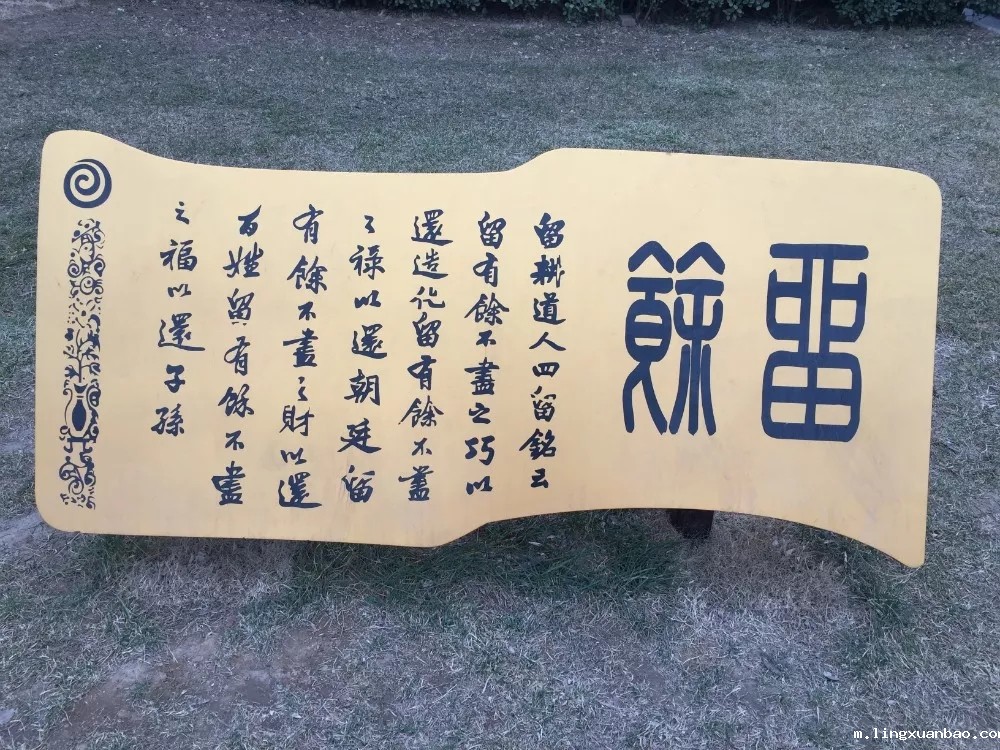 留餘
留耕道人四留銘云
留有餘不盡之巧以
還造化留有餘不盡
之祿以還朝廷留
有餘不盡之財以還
百姓留有餘不盡
之福以還子孫
m.lingxuanbao.com